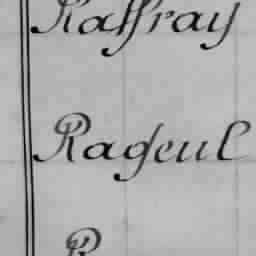 Raffray
Rageul
R